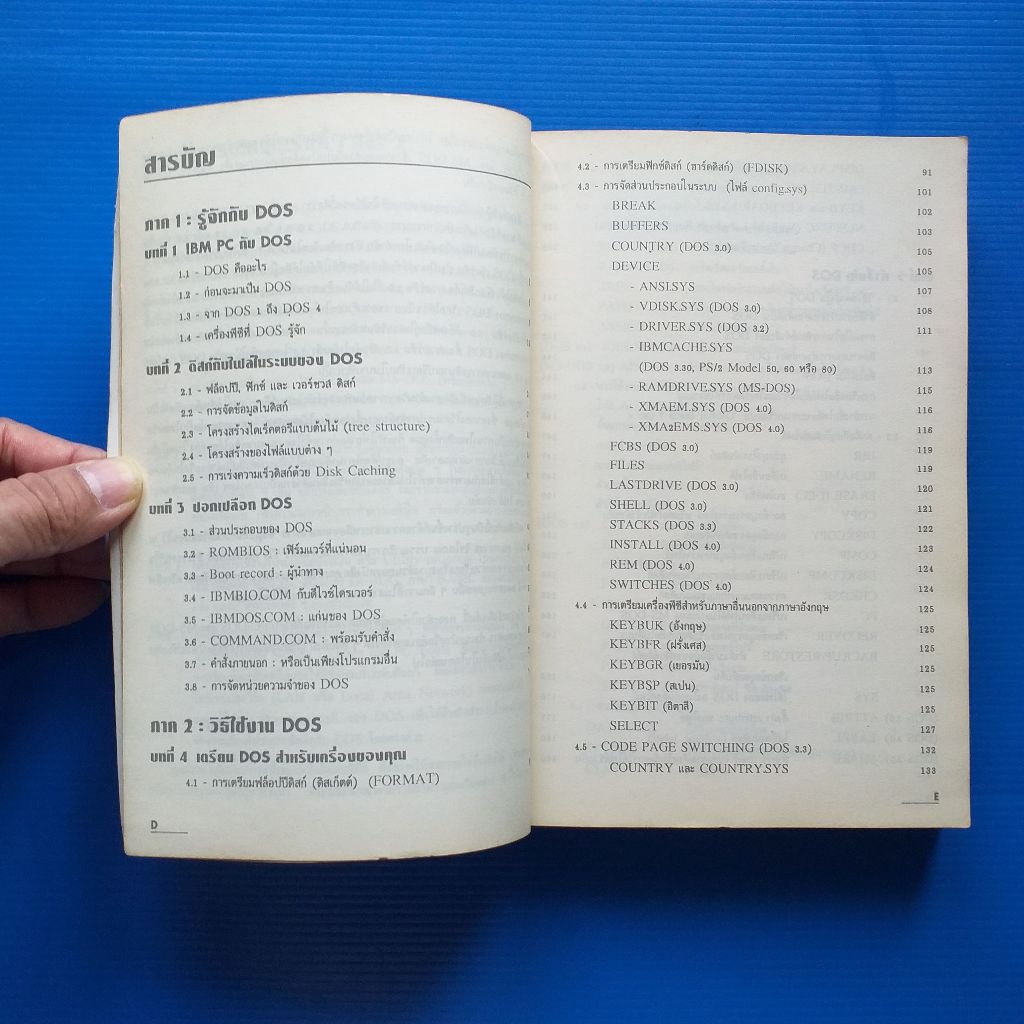 สารบัญ
ภาค 1 : รู้จักกับ DOS
บทที่ 1 IBM PC กับ DOS
1.1 - DOS คืออะไร
1.2 - ก่อนจะมาเป็น DOS
1.3 - จาก DOS 1 ถึง DOS 4
1.4 - เครื่องพีซีที่ DOS รู้จัก
บทที่ 2 ดิสก์กับไฟล์ในระบบของ DOS
2.1 - ฟล็อปปี, ฟิกซ์ และ เวอร์ชวล ดิสก์
2.2 - การจัดข้อมูลในดิสก์
2.3 - โครงสร้างไดเร็คตอรีแบบต้นไม้ (tree structure)
2.4 - โครงสร้างของไฟล์แบบต่าง ๆ
2.5 - การเร่งความเร็วดิสก์ด้วย Disk Caching
บทที่ 3 ปอกเปลือก DOS
3.1 - ส่วนประกอบของ DOS
3.2 - ROMBIOS : เฟิร์มแวร์ที่แน่นอน
3.3 - Boot record : ผู้นำทาง
3.4 - IBMBIO.COM กับดีไวซ์ไดรเวอร์
3.5 - IBMDOS.COM : แก่นของ DOS
3.6 - COMMAND.COM : พร้อมรับคำสั่ง
3.7 - คำสั่งภายนอก : หรือเป็นเพียงโปรแกรมอื่น
3.8 - การจัดหน่วยความจำของ DOS
ภาค 2 : วิธีใช้งาน DOS
บทที่ 4 เตรียม DOS สำหรับเครื่องของคุณ
4.1 - การเตรียมฟล็อปปีดิสก์ (ดิสเก็ตต์) (FORMAT)
D
4.2 - การเตรียมฟิกซ์ดิสก์ (ฮาร์ดดิสก์) (FDISK) 91
4.3 - การจัดส่วนประกอบในระบบ (ไฟล์ config.sys) 101
BREAK 102
BUFFERS 103
COUNTRY (DOS 3.0) 105
DEVICE 105
- ANSI.SYS 107
- VDISK.SYS (DOS 3.0) 108
- DRIVER.SYS (DOS 3.2) 111
- IBMCACHE.SYS
(DOS 3.30, PS/2 Model 50, 60 หรือ 80) 113
- RAMDRIVE.SYS (MS-DOS) 115
- XMAEM.SYS (DOS 4.0) 116
- XMA2EMS.SYS (DOS 4.0) 116
FCBS (DOS 3.0) 119
FILES 119
LASTDRIVE (DOS 3.0) 120
SHELL (DOS 3.0) 121
STACKS (DOS 3.3) 122
INSTALL (DOS 4.0) 123
REM (DOS 4.0) 124
SWITCHES (DOS 4.0) 124
4.4 - การเตรียมเครื่องพีซีสำหรับภาษาอื่นนอกจากภาษาอังกฤษ 125
KEYBUK (อังกฤษ) 125
KEYBFR (ฝรั่งเศส) 125
KEYBGR (เยอรมัน) 125
KEYBSP (สเปน) 125
KEYBIT (อิตาลี) 125
SELECT 127
4.5 - CODE PAGE SWITCHING (DOS 3.3) 132
COUNTRY และ COUNTRY.SYS 133
E